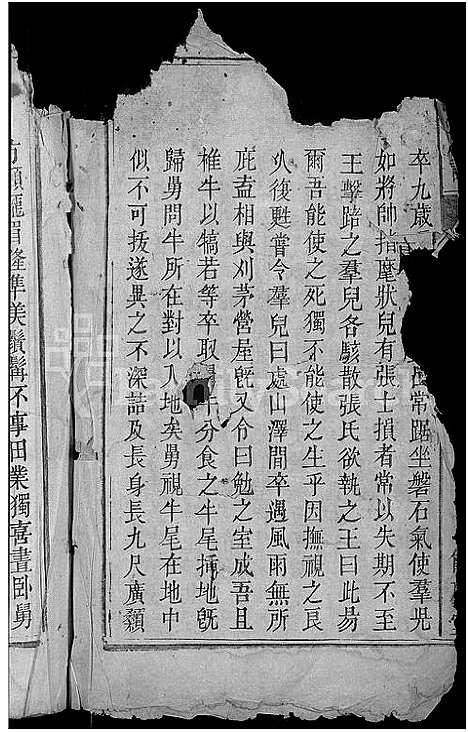 卒九歲常踞坐磐石氣使羣児
如將帥指麾狀兒有張士損者常以失期不至
王擊踣之羣兒各駭散張氏欲執之王曰此昜
爾吾能使之死獨不能使之生乎因撫視之良
乆復甦嘗令羣兒曰處山澤間卒遇風雨無所
庇盍相與刈茅營屋旣又令曰勉之室成吾且
椎牛以犒若等卒取牛分食之牛尾揷地旣
歸舅問牛所在對以入地矣舅視牛尾在地中
似不可拔遂異之不深詰及長身長九尺廣顙
方頤龎眉隆準美鬚髯不事田業獨喜晝臥舅